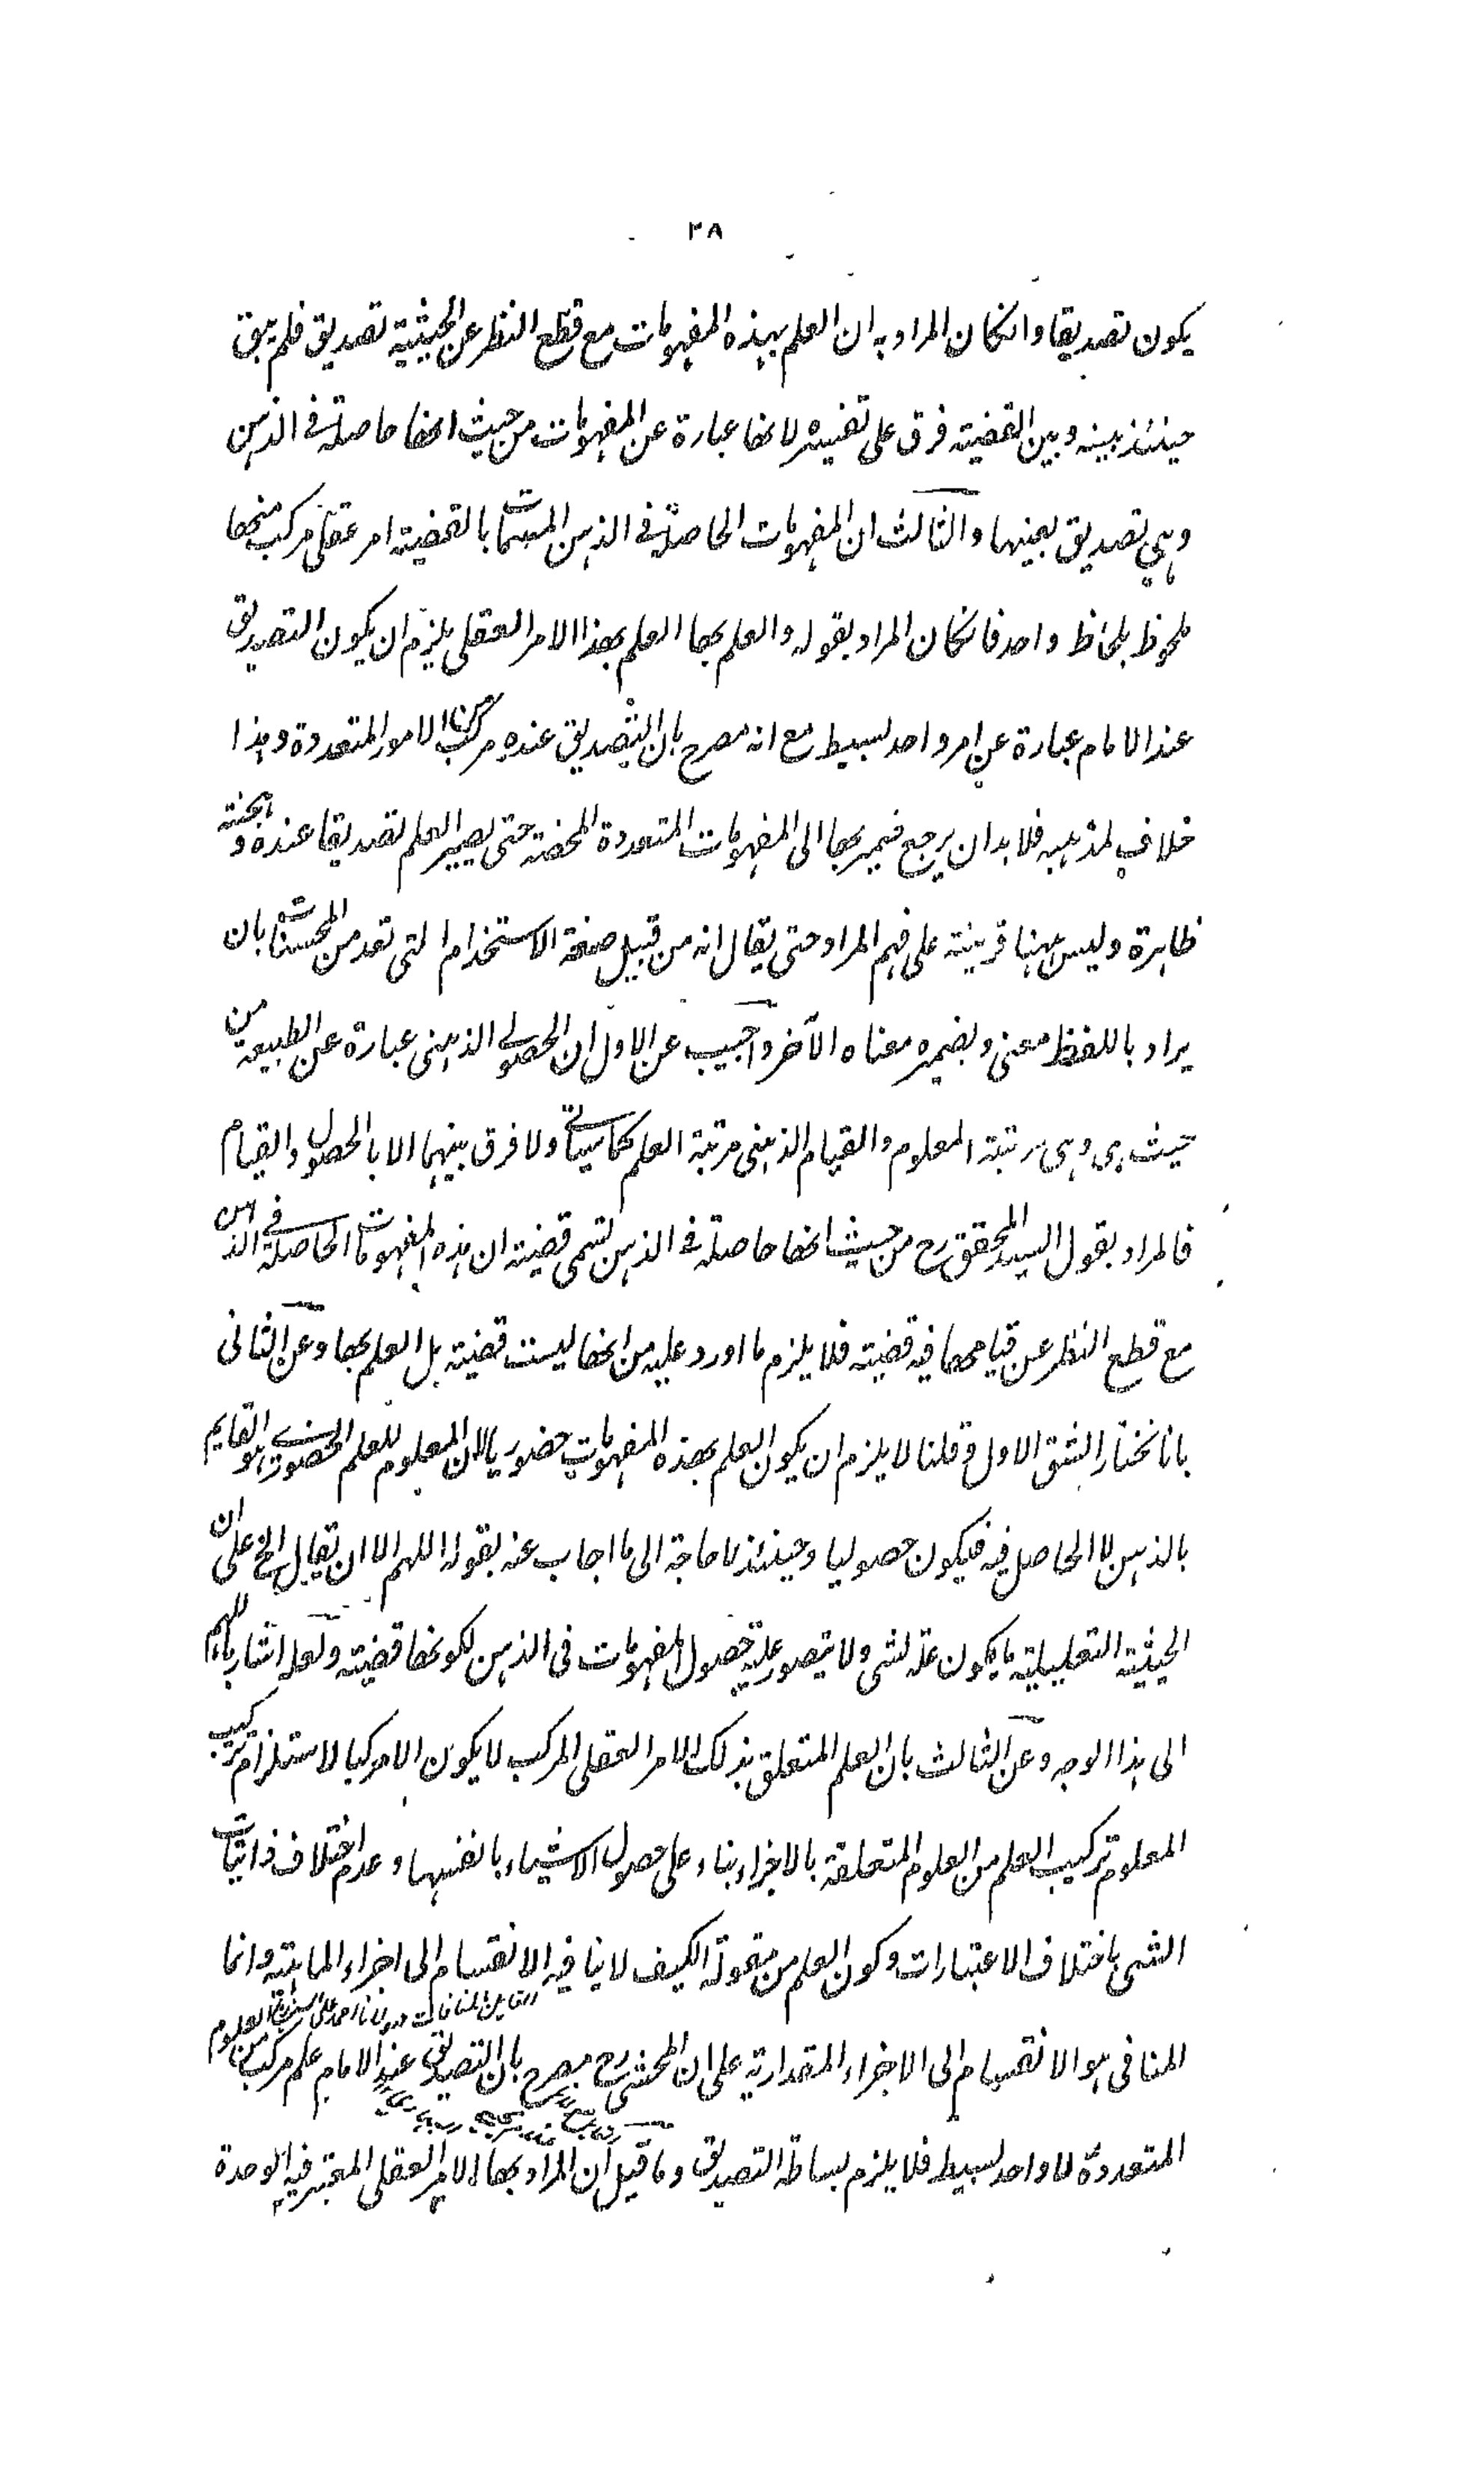 ٢٨
يكون تصديقا وانكان المراد به ان العلم بهذه المفهومات مع قطع النظر عن الحيثية تصديق فلم يبق
حينئذ بينه وبين القضية فرق على تفسيره لانها عبارة عن المفهومات من حيث انها حاصلة فى الذهن
وهي تصديق بعينها والثالث ان المفهومات الحاصلة فى الذهن المسماة بالقضية امر عقلى مركب منها
ملحوظ بلحاظ واحد فانكان المراد بقوله والعلم بها العلم بهذا الامر العقلى يلزم ان يكون التصديق
عند الامام عبارة عن امر واحد بسيط مع انه مصرح بان التصديق عنده مركب من الامور المتعددة وهذا
خلاف لمذهبه فلا بد ان يرجع ضمير بها الى المفهومات المتعددة المحضة حتى يصير العلم تصديقا عنده و
ظاهرة وليس ههنا قرينة على فهم المراد حتى يقال انه من قبيل صنعة الاستخدام التى تعد من المحسنات بان
يراد باللفظ معنى وبضميره معناه الآخر واجيب عن الاول ان الحصولى الذهنى عبارة عن الطبيعة من
حيث هى وهى مرتبة المعلوم والقيام الذهنى مرتبة العلم كما سيأتى ولا فرق بينهما الا بالحصول والقيام
فالمراد بقول السيد المحقق رح من حيث انها حاصلة فى الذهن تسمى قضية ان هذه المفهومات الحاصلة فى الذهن
مع قطع النظر عن قيامها فيه قضية فلا يلزم ما اورد عليه من انها ليست قضية بل العلم بها وعن الثانى
بانا نختار الشق الاول وقلنا لا يلزم ان يكون العلم بهذه المفهومات حضوريا لان المعلوم للعلم الحضورى هو القايم
بالذهن لا الحاصل فيه فيكون حصوليا وحينئذ لا حاجة الى ما اجاب عنه بقوله اللهم الا ان يقال الخ على ان
الحيثية التعليلية ما يكون علة لشى ولا يتصور علية حصول المفهومات فى الذهن لكونها قضية ولعله اشار باللهم
الى هذا الوجه وعن الثالث بان العلم المتعلق بذلك الامر العقلى المركب لا يكون الا مركبا لاستلزام تركيب
المعلوم تركيب العلم من العلوم المتعلقة بالاجزاء بناء على حصول الاشياء بانفسها وعدم اختلاف ذاتيات
الشى باختلاف الاعتبارات وكون العلم من مقولة الكيف لا ينافيه الانقسام الى اجزاء الماهية وانما
المنافى هو الانقسام الى الاجزاء المقدارية على ان المحشى رح مصرح بان التصديق عند الامام علم مركب من العلوم
المتعددة لا واحد بسيط فلا يلزم بساطة التصديق وما قيل ان المراد بها الامر العقلى المعتبر فيه الوحدة